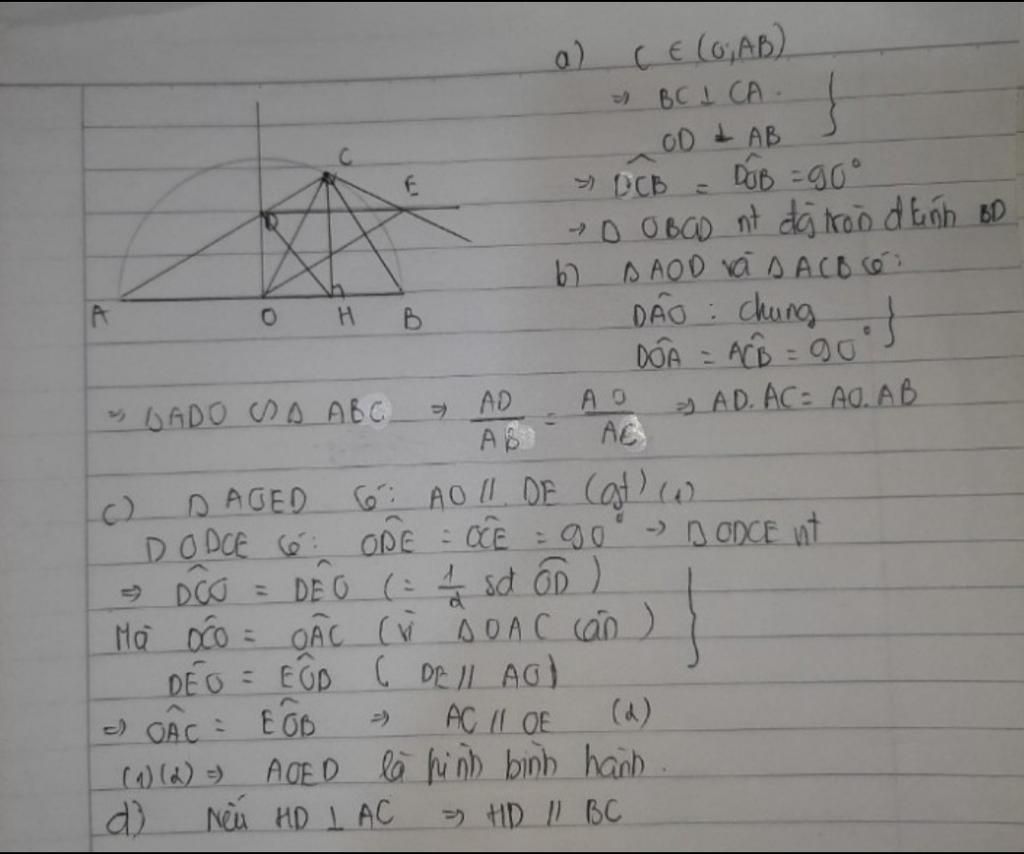 a) C ∈ (O; AB)
⇒ BC ⊥ CA.
OD ⊥ AB
⇒ DĈB = DÔB = 90°
→ ▯ OBCD nt đg tròn đ kính BD
b) ΔAOD và ΔACB có:
DÂO : chung
DÔA = AĈB = 90°
⇒ ΔADO ∽ Δ ABC ⇒ AD/AB = AO/AC ⇒ AD.AC = AO.AB
c) ▯ AOED có: AO // DE (gt) (1)
▯ ODCE có: OD̂E = OĈE = 90° → ▯ ODCE nt
⇒ DĈO = DÊO (= 1/2 sđ OD)
Mà DĈO = OÂC (vì ΔOAC cân)
DÊO = EÔB (DE // AO)
⇒ OÂC = EÔB ⇒ AC // OE (2)
(1)(2) ⇒ AOED là hình bình hành.
d) Nếu HD ⊥ AC ⇒ HD // BC
A
O
H
B
C
D
E